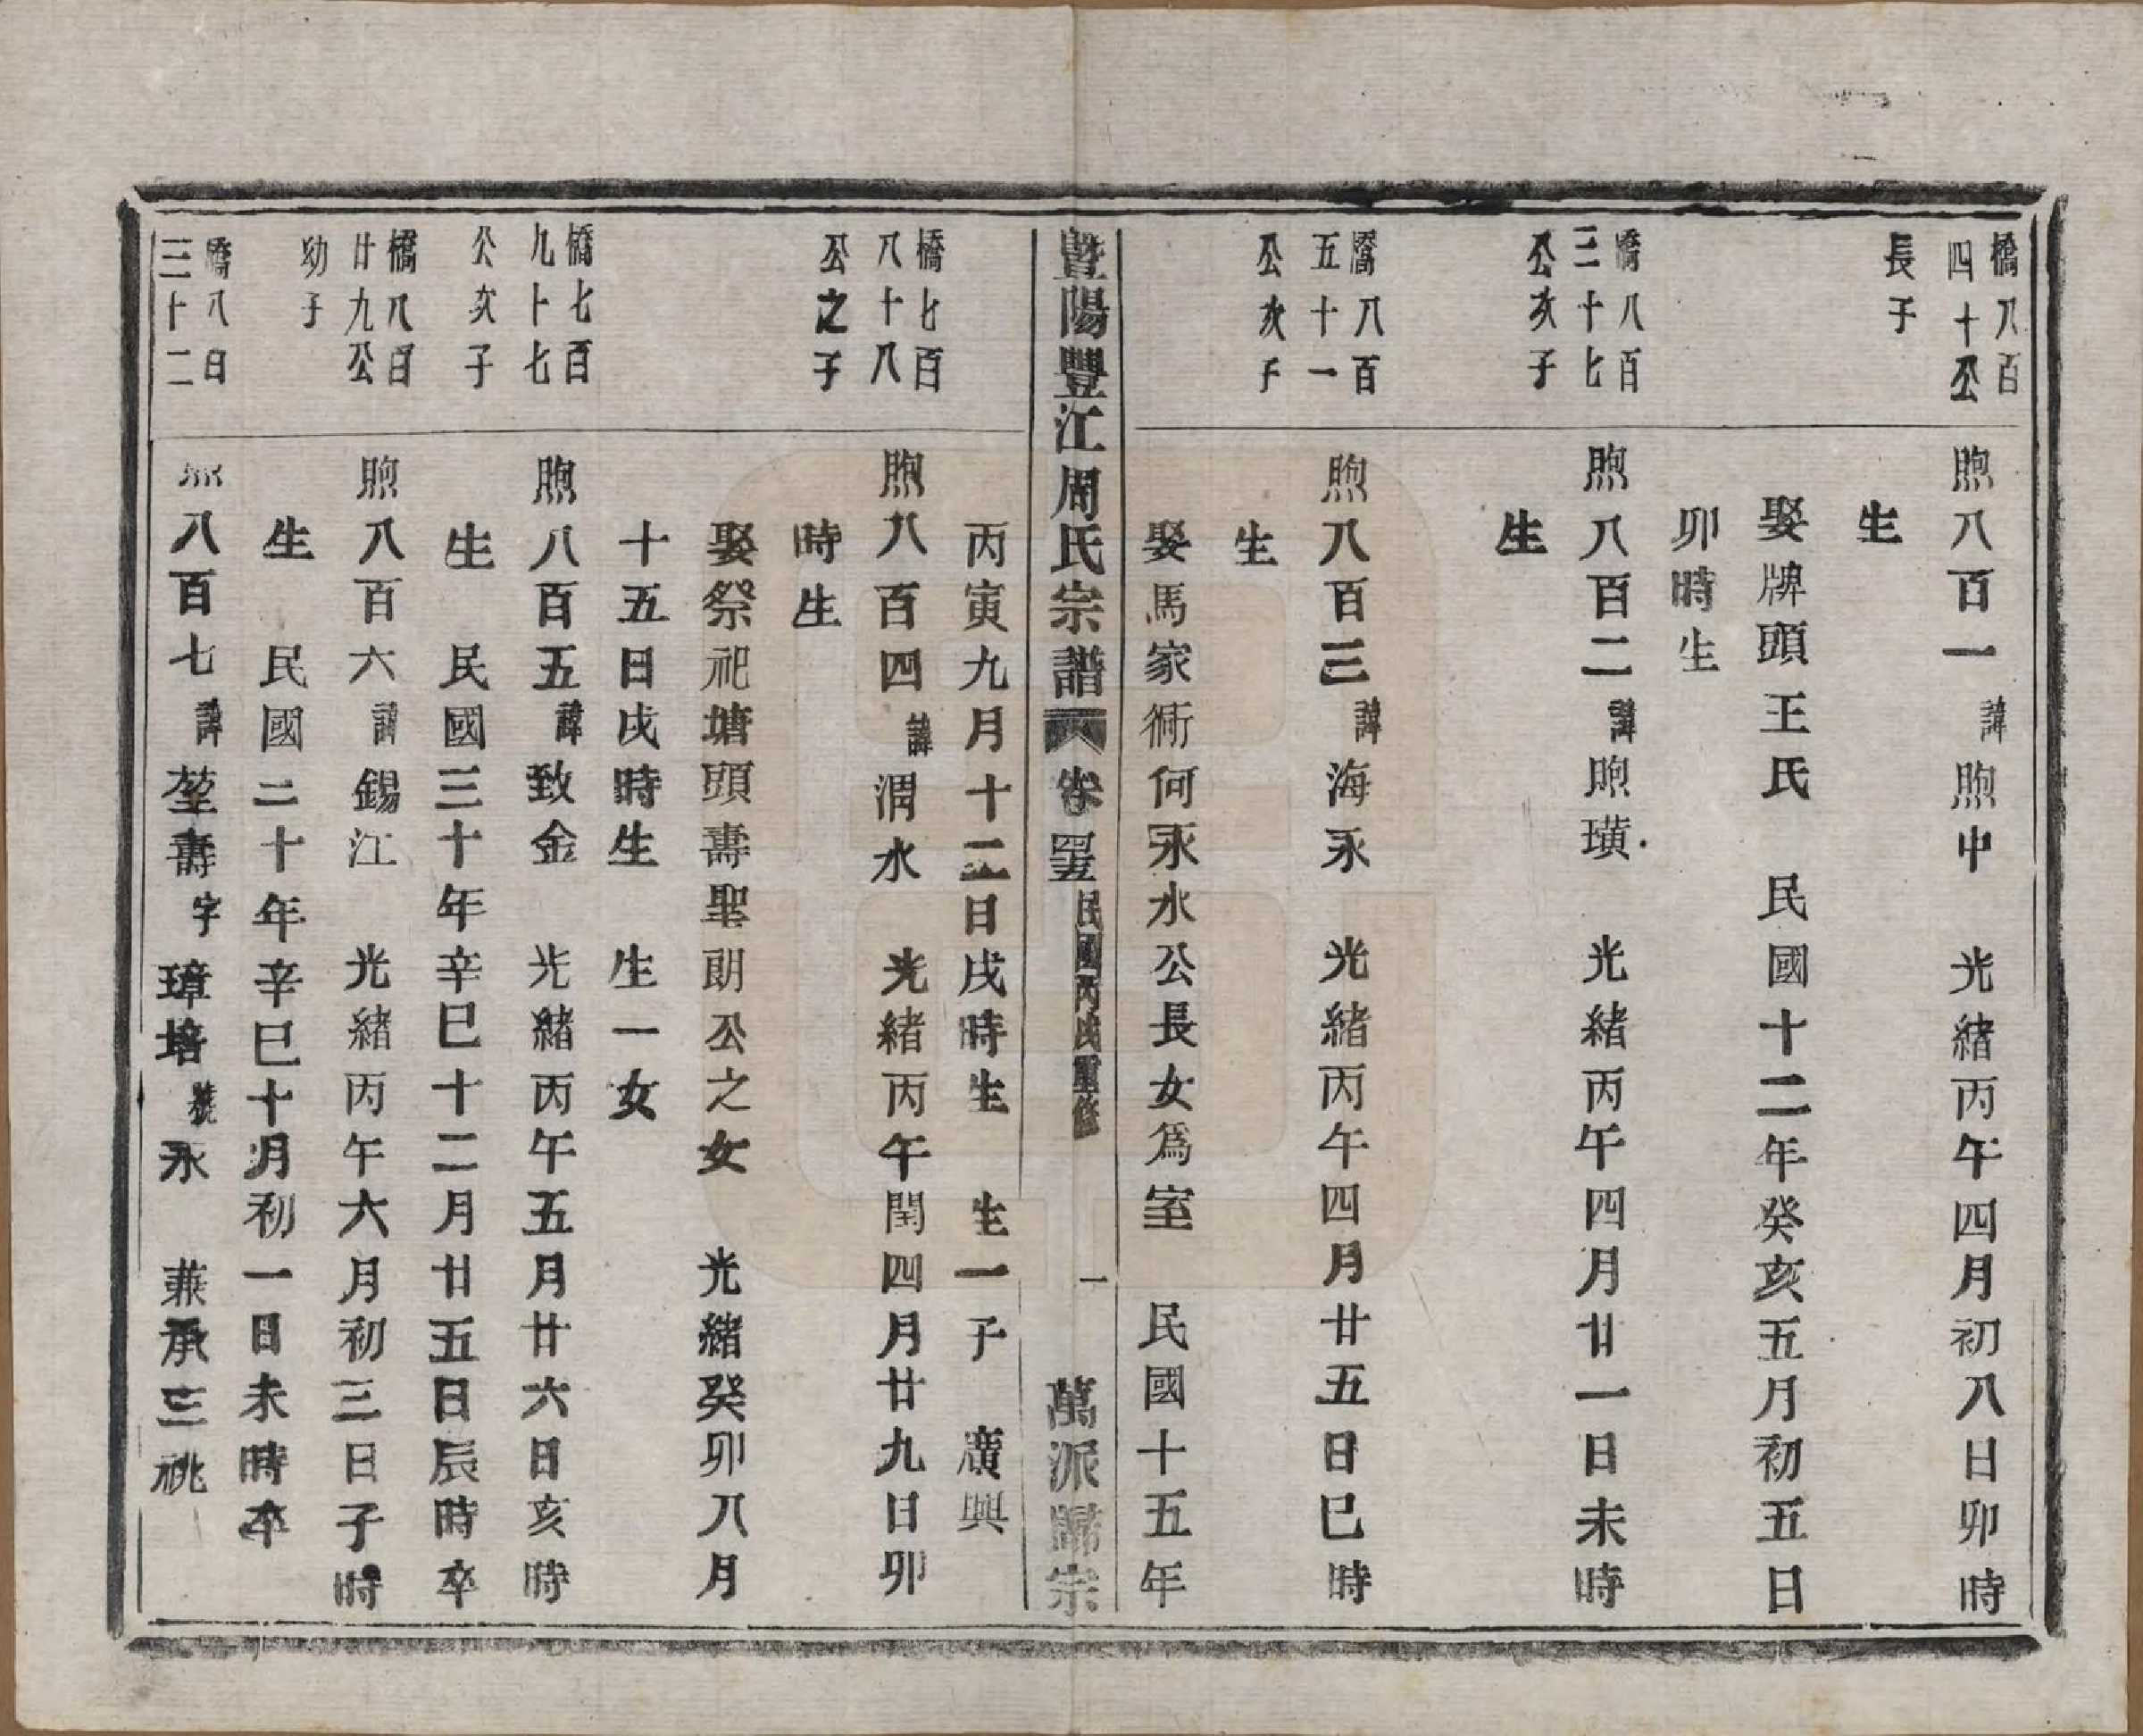 橋八百
四十公
長子
煦八百一諱煦中 光緒丙午四月初八日卯時
生
娶牌頭王氏 民國十二年癸亥五月初五日
卯時生
橋八百
三十七
公次子
煦八百二諱煦璜 光緒丙午四月廿一日未時
生
橋八百
五十一
公次子
煦八百三諱海永 光緒丙午四月廿五日巳時
生
娶馬家衕何永水公長女為室 民國十五年
暨陽豐江周氏宗譜 卷 民國丙戌重修 一 萬派歸宗
丙寅九月十二日戌時生 生一子 廣興
橋七百
八十八
公之子
煦八百四諱渭水 光緒丙午閏四月廿九日卯
時生
娶祭祀塘頭壽聖朗公之女 光緒癸卯八月
十五日戌時生 生一女
橋七百
九十七
公次子
煦八百五諱致金 光緒丙午五月廿六日亥時
生 民國三十年辛巳十二月廿五日辰時卒
橋八百
廿九公
幼子
煦八百六諱錫江 光緒丙午六月初三日子時
生 民國二十年辛巳十月初一日未時卒
橋八百
三十二
煦八百七諱堃壽字璋培號永 兼承三祧